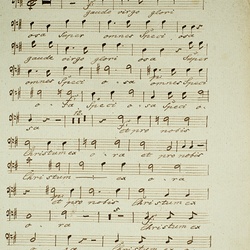 gaude virgo glori
osa super omnes speciosa
gaude virgo gloriosa super
omnes speci o . sa omnes speci
o . sa speci o . sa speci o .
sa et pro nobis
Christum ca o . ra et pro nobis
Christum o . ra
et pro nobis Christum ca
o . ra Christum ca
o . ra